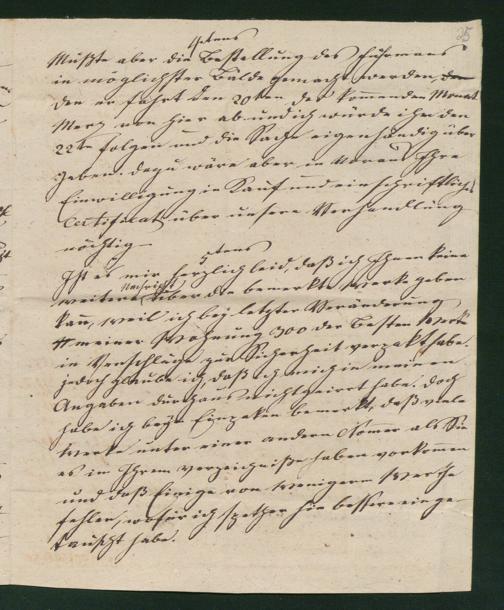 25
4tens
Müßte aber die Bestellung des Fuhrmans
in möglichster Bälde gemacht werden,
den er fahrt den 20ten des kommenden Monat
Merz von hier ab und ich würde ihm den
22te folgen und die Sache eigenhändig über
geben. dazu wäre aber im Voraus Ihre
Einwilligung in Kauf und ein schriftliches
Certifikat über unsere Verhandlung
nöthig –
5tens
Ist es mir herzlich leid, daß ich Ihnen keine
weitere Nachricht über die bemerkte Werke geben
kan, weil ich bey letzter Veränderung
meiner Wohnung 300 der besten Werke
in Verschläge zur Sicherheit verpakt habe.
jedoch glaube ich, daß ich mich in meinen
Angaben durchaus nicht geirrt habe. doch
habe ich beym Einpaken bemerkt, daß viele
Werke unter einer andern Nomer als Sie
es in Ihrem Verzeichniße haben vorkommen
und daß Einige von wenigerm Werthe
fehlen, wofür ich spether hin bessere einge
tauscht habe.